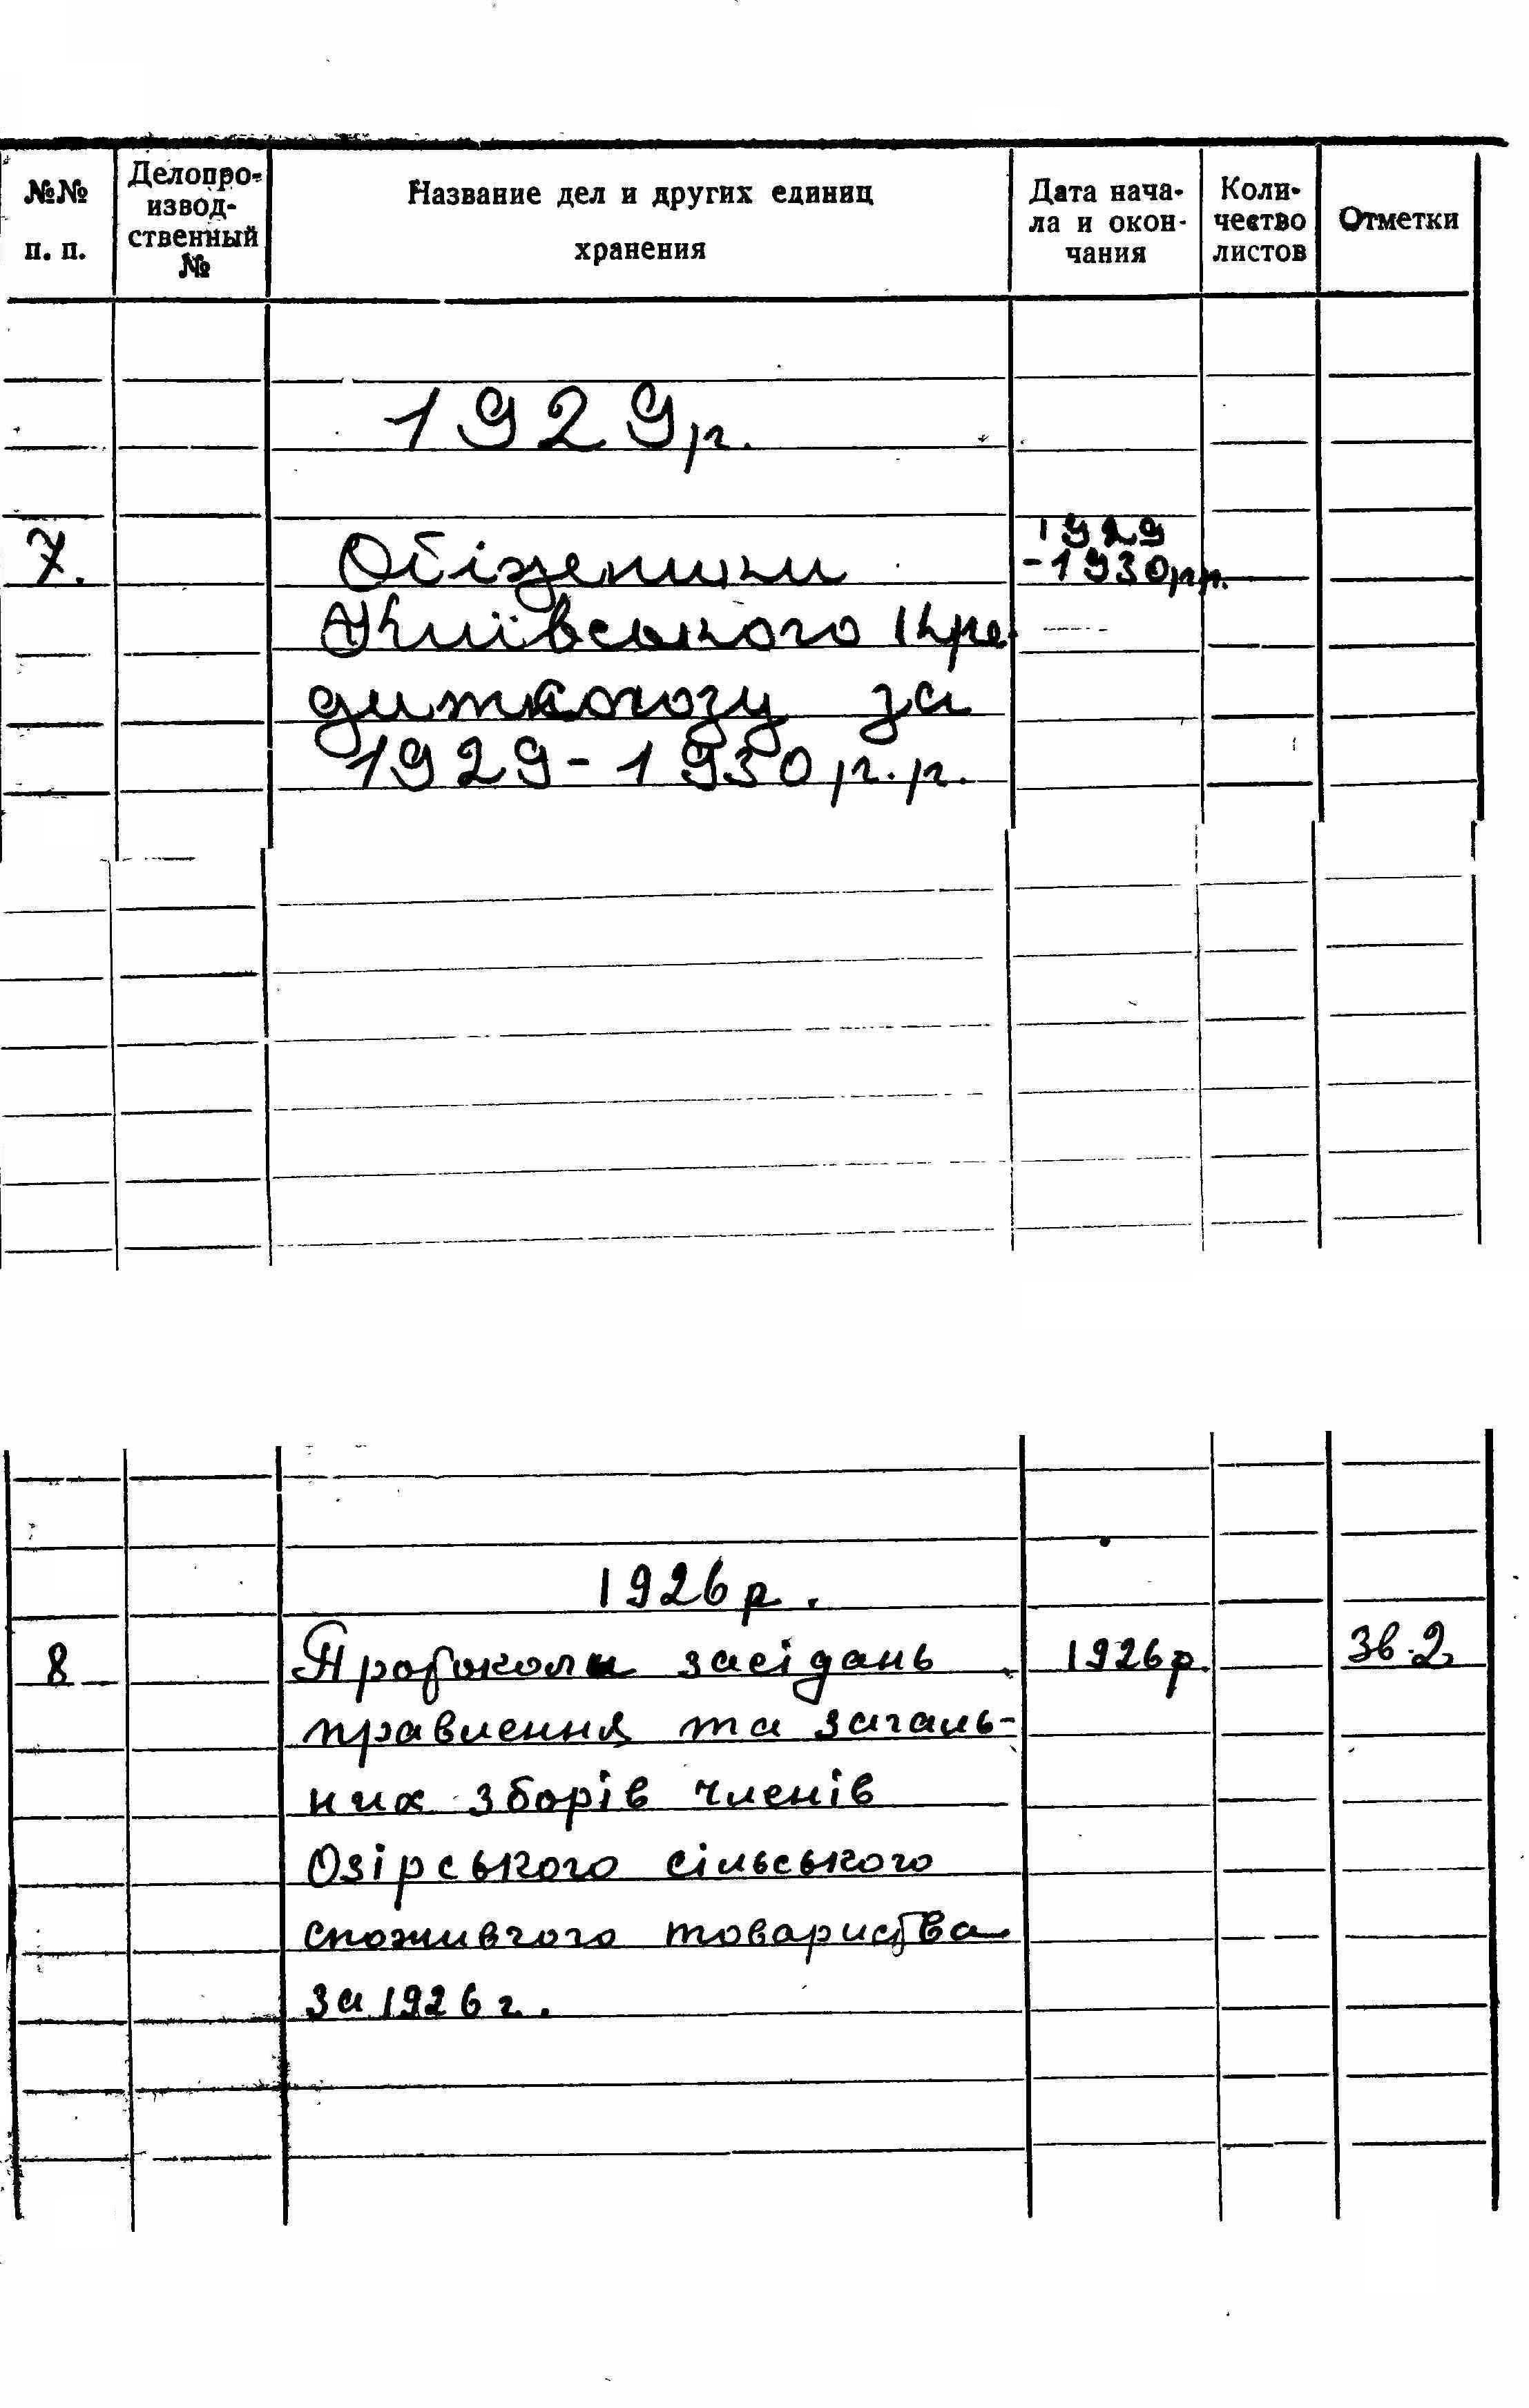 №№ п. п.
Делопро-
извод-
ственный
№
Название дел и других единиц
хранения
Дата нача-
ла и окон-
чания
Коли-
чество
листов
Отметки
1929 р.
7. Обіжники 1929
-1930 р.р.
Київського Кре
дитсоюзу за
1929-1930 р.р.
1926 р.
8 Протоколи засідань 1926 р. Зв. 2.
правлення та загаль-
них зборів членів
Озірського сільського
споживчого товариства
за 1926 г.